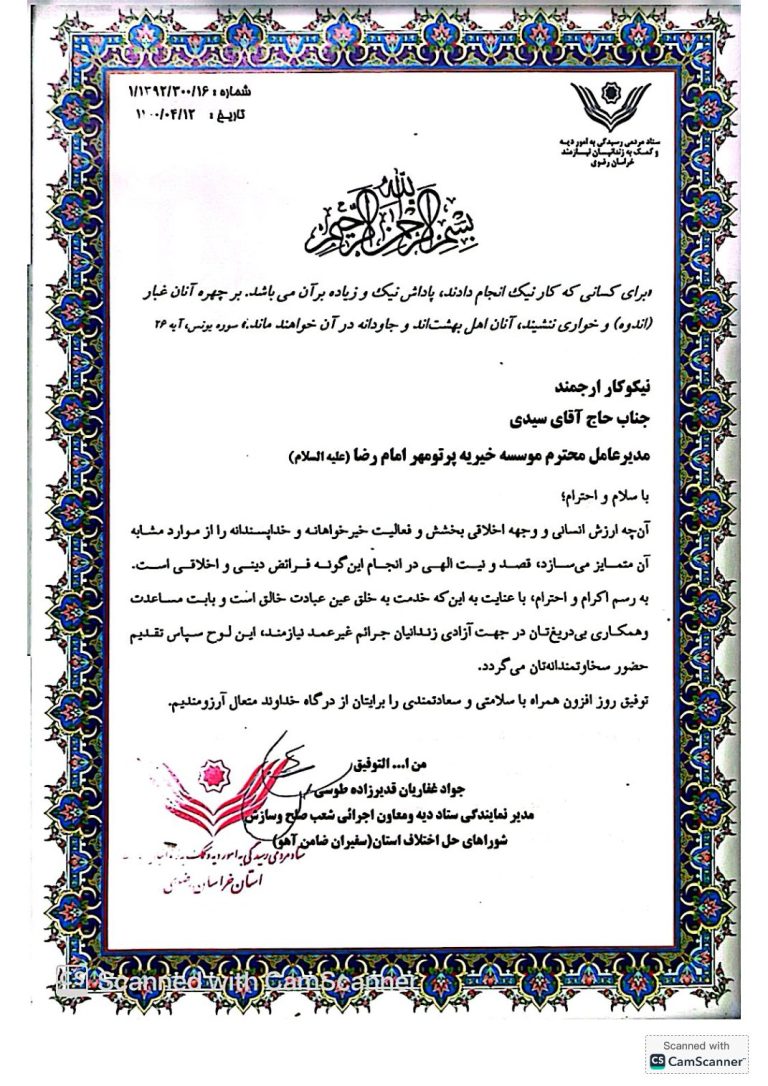 شماره : ۱/۱۳۹۲/۳۰۰/۱۶
تاریخ : ۱۴۰۰/۰۴/۱۲
ستاد مردمی رسیدگی به امور دیه
و کمک به زندانیان نیازمند
خراسان رضوی
بسم الله الرحمن الرحیم
«برای کسانی که کار نیک انجام دادند، پاداش نیک و زیاده برآن می باشد. بر چهره آنان غبار
(اندوه) و خواری ننشیند، آنان اهل بهشت‌اند و جاودانه در آن خواهند ماند.» سوره یونس، آیه ۲۶
نیکوکار ارجمند
جناب حاج آقای سیدی
مدیرعامل محترم موسسه خیریه پرتومهر امام رضا (علیه السلام)
با سلام و احترام؛
آن‌چه ارزش انسانی و وجهه اخلاقی بخشش و فعالیت خیرخواهانه و خداپسندانه را از موارد مشابه
آن متمایز می‌سازد، قصد و نیت الهی در انجام این‌گونه فرائض دینی و اخلاقی است.
به رسم اکرام و احترام، با عنایت به این‌که خدمت به خلق عین عبادت خالق است و بابت مساعدت
وهمکاری بی‌دریغ‌تان در جهت آزادی زندانیان جرائم غیرعمد نیازمند، این لوح سپاس تقدیم
حضور سخاوتمندانه‌تان می‌گردد.
توفیق روز افزون همراه با سلامتی و سعادتمندی را برایتان از درگاه خداوند متعال آرزومندیم.
من ا... التوفیق
جواد غفاریان قدیرزاده طوسی
مدیر نمایندگی ستاد دیه ومعاون اجرائی شعب صلح وسازش
شوراهای حل اختلاف استان(سفیران ضامن آهو)
ستاد مردمی رسیدگی به امور دیه و کمک به
استان خراسان رضوی
Scanned with CamScanner
Scanned with
CS CamScanner